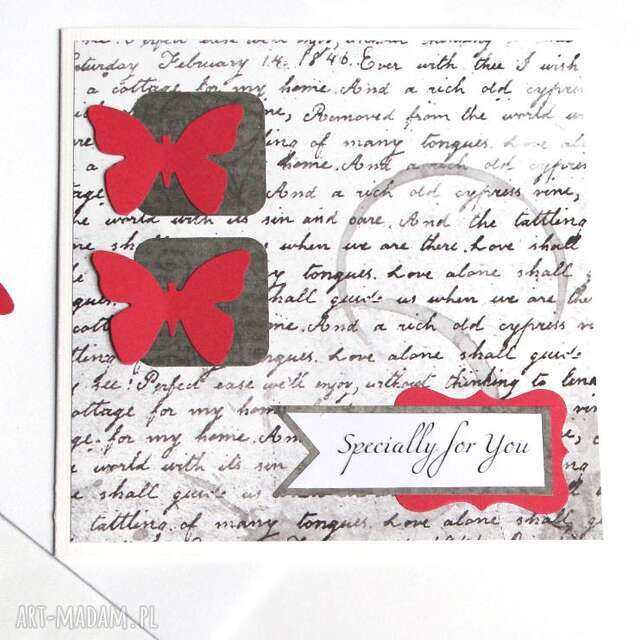 Saturday February 14. 1846. Ever with thee I wish
a cottage for my home. And a rich old cypress
ine, Removed from the world
ling of many tongues.
home. And a rich old cypress
tage And a rich old cypress vine,
the world with its sin and care. And the tattling
she shall when we are there. Love shall
my tongues. Love alone shall
hall guide us when we are the
cott home. And a rich old cypress v
ttling tongues. Love alone shall guide
see! Perfect ease we'll enjoy, without thinking to
ottage for my home. And a rich old cypress vine,
for my home. And
e world with its sin
e shall guide us
tattling of many tongues. Love alone shall
Specially for You
ART-MADAM.PL